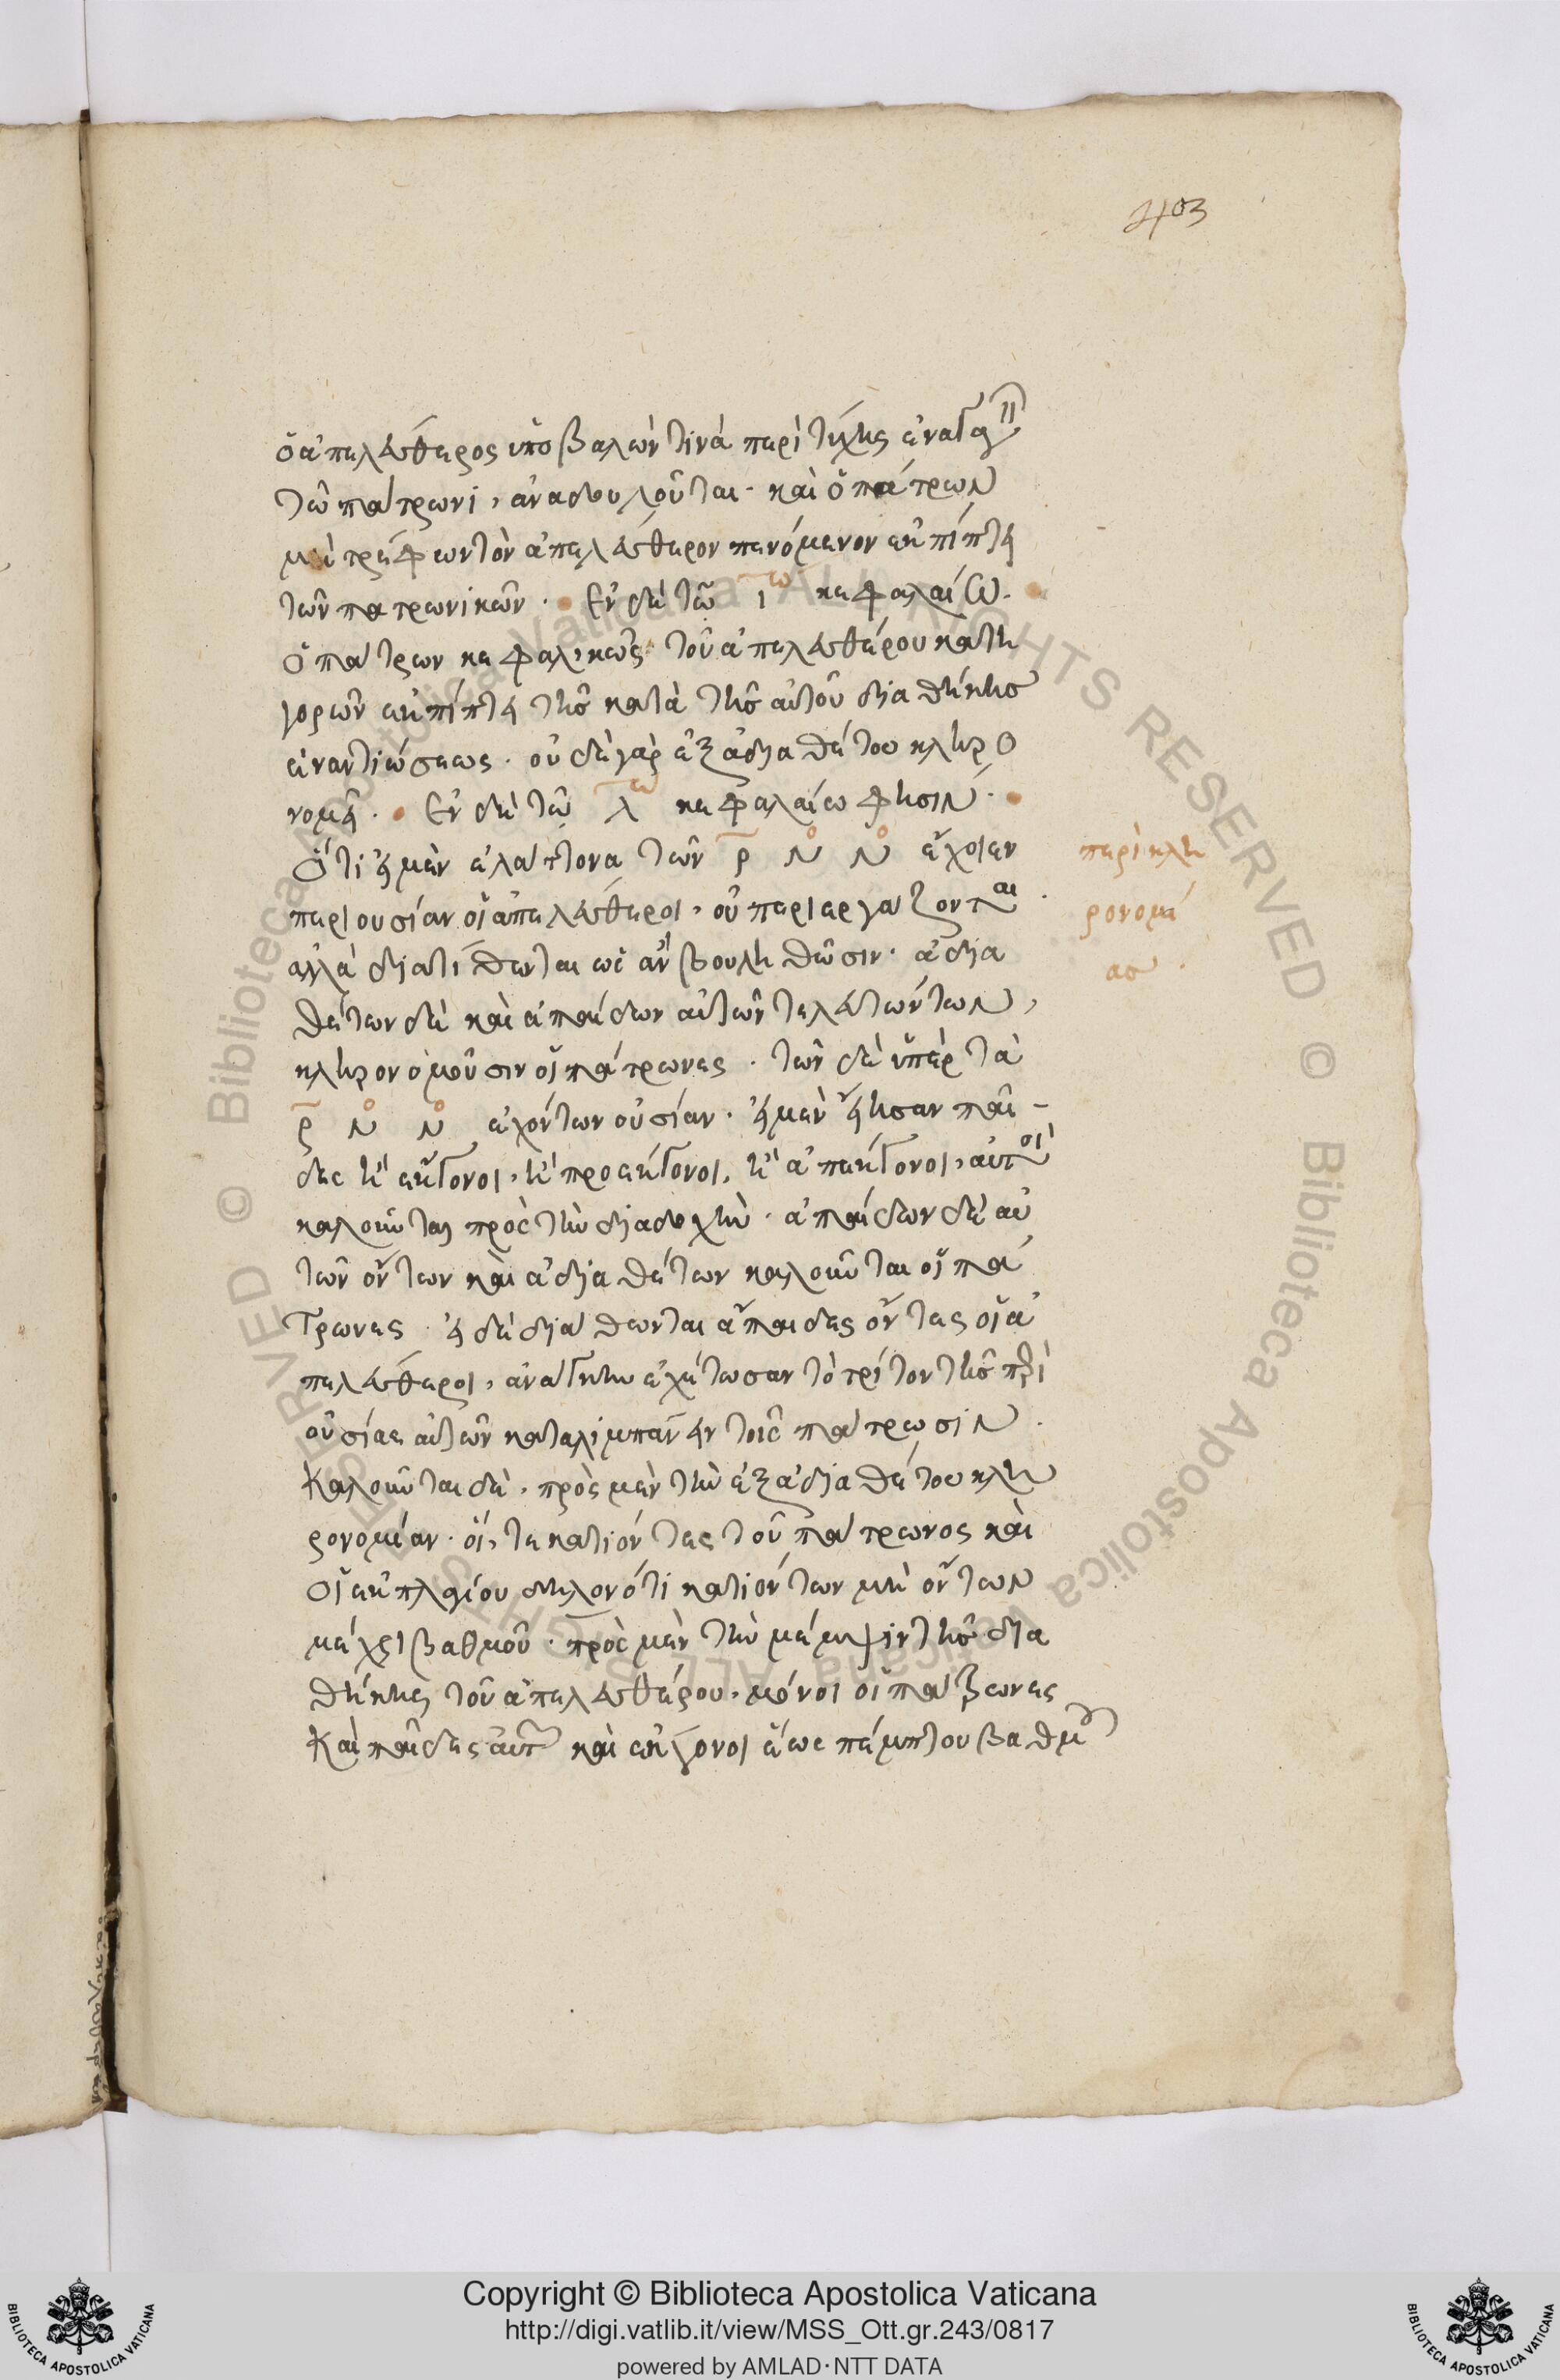 403
ὁ ἀπελεύθερος ὑποβαλών τινά περὶ τύχης ἐναγαγεῖν
τῶ πάτρωνι, ἀναδουλοῦται. καὶ ὁ πάτρων
μὴ τρέφων τὸν ἀπελεύθερον πενόμενον ἐκπίπτει
τῶν πατρωνικῶν. Ἐν δὲ τῶ ι^ω κεφαλαίω.
ὁ πάτρων κεφαλικῶς τοῦ ἀπελευθέρου κατη
γορῶν ἐκπίπτει τῆς κατὰ τῆς αὐτοῦ διαθήκης
ἐναντιώσεως. οὐδὲ γὰρ ἐξ ἀδιαθέτου κληρο
νομεῖ. Ἐν δὲ τῶ λ^ω κεφαλαίω φησίν.
Ὅτι εἰ μὲν ἐλάττονα τῶν ρ ν^ο ν^ο ἔχοιεν
περιουσίαν οἱ ἀπελεύθεροι, οὐ περιεργάζονται
ἀλλὰ διατίθωνται ὡς ἂν βουληθῶσιν. ἀδια
θέτων δὲ καὶ ἀπαίδων αὐτῶν τελευτώντων,
κληρονομοῦσιν οἱ πάτρωνες. τῶν δὲ ὑπὲρ τὰ
ρ ν^ο ν^ο ἐχόντων οὐσίαν. εἰ μὲν εἴησαν παῖ-
δες ἢ ἔκγονοι, ἢ προέκγονοι, ἢ ἀπέκγονοι, αὐτοὶ
καλοῦνται πρὸς τὴν διαδοχὴν. ἀπαίδων δὲ αὐ
τῶν ὄντων καὶ ἀδιαθέτων καλοῦνται οἱ πά
τρωνες. εἰ δὲ διάθωνται ἄπαιδες ὄντες οἱ ἀ
πελεύθεροι, ἀνάγκην ἐχέτωσαν τὸ τρίτον τῆς περι
ουσίας αὐτῶν καταλιμπάνειν τοῖς πάτρωσιν.
καλοῦνται δὲ, πρὸς μὲν τὴν ἐξ ἀδιαθέτου κλη
ρονομίαν. οἵ, τε κατιόντες τοῦ πάτρωνος καὶ
οἱ ἐκ πλαγίου δηλονότι κατιόντων μὴ ὄντων
μέχρι βαθμοῦ. πρὸς μὲν τὴν μέμψιν τῆς δια
θήκης τοῦ ἀπελευθέρου, μόνοι οἱ πάτρωνες
καὶ παῖδες αὐτῶν καὶ ἔκγονοι ἕως πέμπτου βαθμοῦ
περὶ κλη
ρονομί
ας.
Copyright © Biblioteca Apostolica Vaticana
http://digi.vatlib.it/view/MSS_Ott.gr.243/0817
powered by AMLAD·NTT DATA